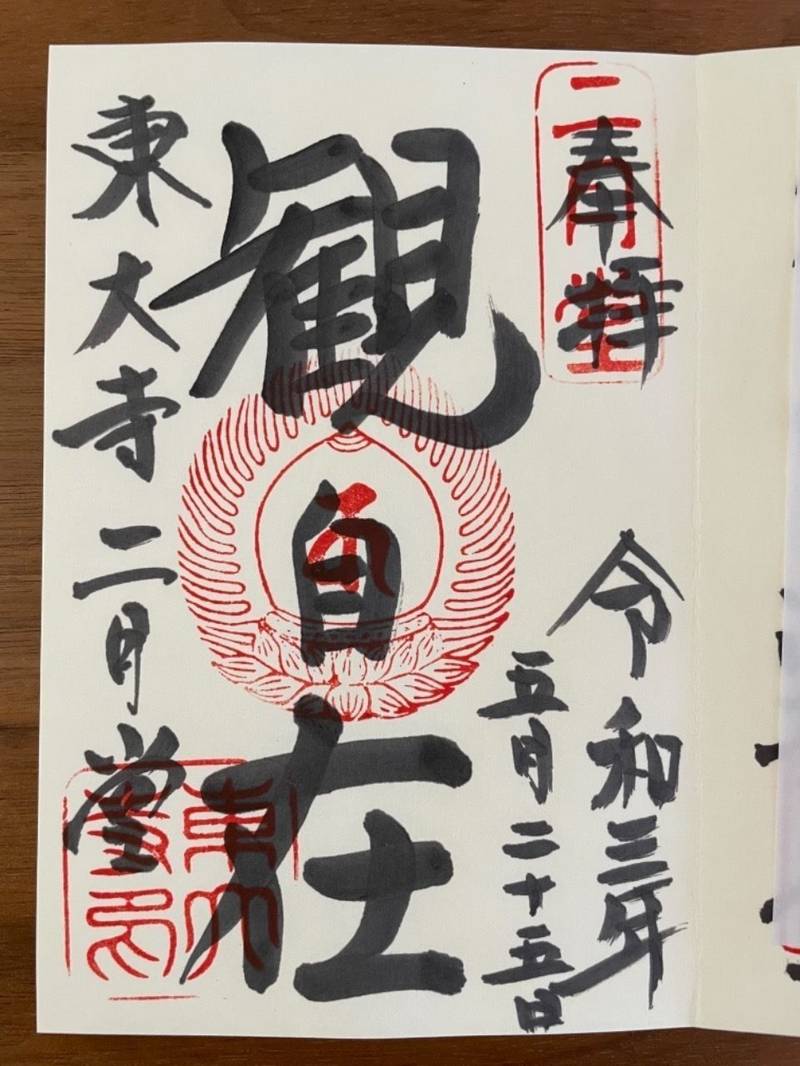 奉拝
二月堂
令和三年
五月二十五日
観自在
東大寺二月堂